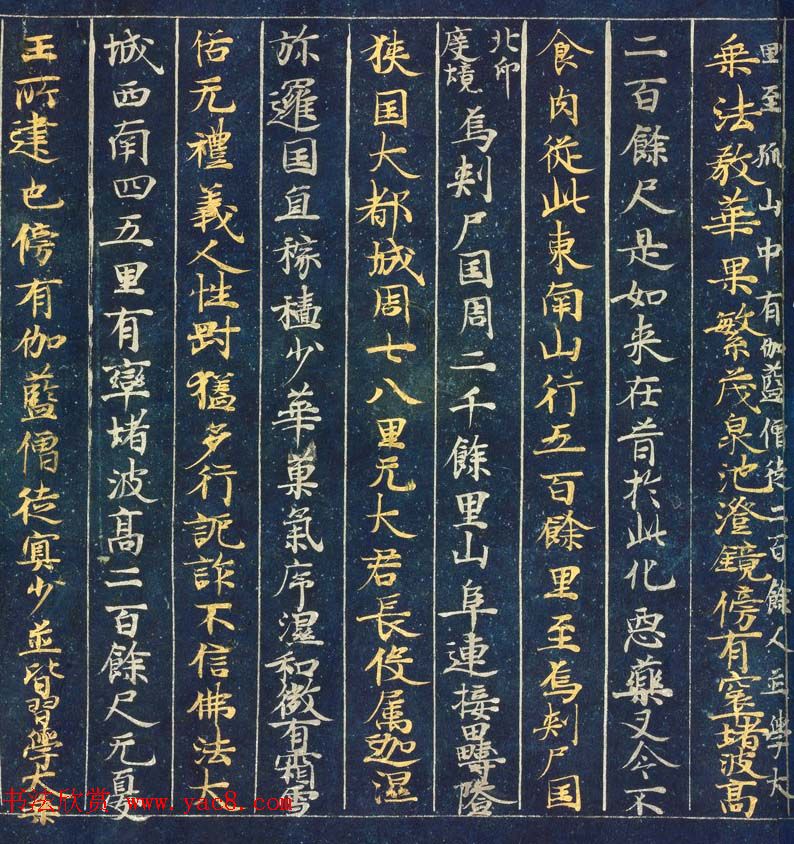 里至孤山中有伽藍僧徒二百餘人並學大
乗法教華果繁茂泉池澄鏡傍有窣堵波高
二百餘尺是如来在昔於此化惡藥叉令不
食肉従此東南山行五百餘里至烏剌尸国
北印度境
烏剌尸国周二千餘里山阜連接田疇隘
狭国大都城周七八里无大君長伇属迦濕
弥邏国宜稼穡少華菓氣序温和微有霜雪
俗无禮義人性剛猛多行詭詐不信佛法大
城西南四五里有窣堵波髙二百餘尺无憂
王所建也傍有伽藍僧徒寡少並皆習學大乗
书法欣赏 www.yac8.com